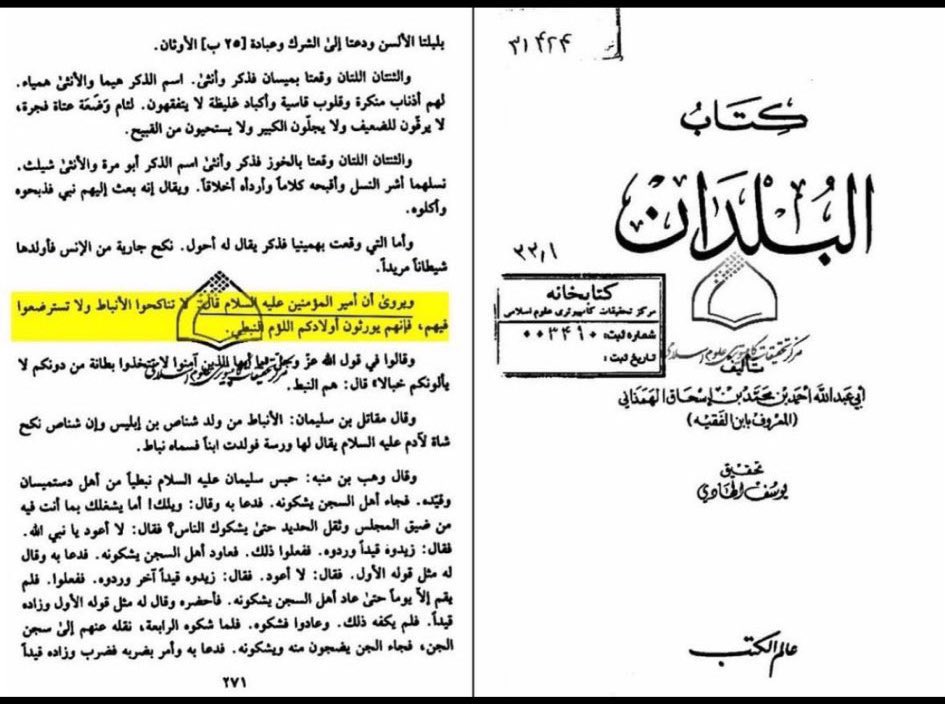 ٣١٤٢٤
كتاب
البلدان
٣٣,١
كتابخانه
مركز تحقيقات كامپيوترى علوم اسلامى
شماره ثبت: ٠٠٣٤٩٠
تاريخ ثبت:
مركز تحقيقات كامپيوترى علوم اسلامى
تأليف
أبي عبد الله أحمد بن محمد بن إسحاق الهمذاني
(المعروف بابن الفقيه)
تحقيق
يوسف الهادي
عالم الكتب
بلبلتا الألسن ودعتا إلىٰ الشرك وعبادة [٢٥ ب] الأوثان.
والثنتان اللتان وقعتا بميسان فذكر وأنثىٰ. اسم الذكر هيما والأنثىٰ همياء.
لهم أذناب منكرة وقلوب قاسية وأكباد غليظة لا يتفقهون. لئام وَضَعَة عتاة فجرة،
لا يرقّون للضعيف ولا يجلّون الكبير ولا يستحيون من القبيح.
والثنتان اللتان وقعتا بالخوز فذكر وأنثىٰ اسم الذكر أبو مرة والأنثىٰ شيلث.
نسلهما أشر النسل وأقبحه كلاماً وأردأه أخلاقاً. ويقال إنه بعث إليهم نبي فذبحوه
وأكلوه.
وأما التي وقعت بهمينيا فذكر يقال له أحول. نكح جارية من الإنس فأولدها
شيطاناً مريداً.
ويروىٰ أن أمير المؤمنين عليه السلام قال: لا تناكحوا الأنباط ولا تسترضعوا
فيهم، فإنهم يورثون أولادكم اللؤم النبطي.
وقالوا في قول الله عزّ وجلّ «يا أيها الذين آمنوا لا تتخذوا بطانة من دونكم لا
يألونكم خبالا» قال: هم النبط.
مركز تحقيقات كامپيوترى علوم اسلامى
وقال مقاتل بن سليمان: الأنباط من ولد شناص بن إبليس وإن شناص نكح
شاة لآدم عليه السلام يقال لها ورسة فولدت ابناً فسماه نباط.
وقال وهب بن منبه: حبس سليمان عليه السلام نبطياً من أهل دستميسان
وقيّده. فجاء أهل السجن يشكونه. فدعا به وقال: ويلك! أما يشغلك بما أنت فيه
من ضيق المجلس وثقل الحديد حتىٰ يشكوك الناس؟ فقال: لا أعود يا نبي الله.
فقال: زيدوه قيداً وردوه. ففعلوا ذلك. فعاود أهل السجن يشكونه. فدعا به وقال
له مثل قوله الأول. فقال: لا أعود. فقال: زيدوه قيداً آخر وردوه. ففعلوا. فلم
يقم إلاّ يوماً حتىٰ عاد أهل السجن يشكونه. فأحضره وقال له مثل قوله الأول وزاده
قيداً. فلم يكفه ذلك. وعادوا فشكوه. فلما شكوه الرابعة، نقله عنهم إلىٰ سجن
الجن، فجاء الجن يضجون منه ويشكونه. فدعا به وأمر بضربه فضرب وزاده قيداً
٢٧١